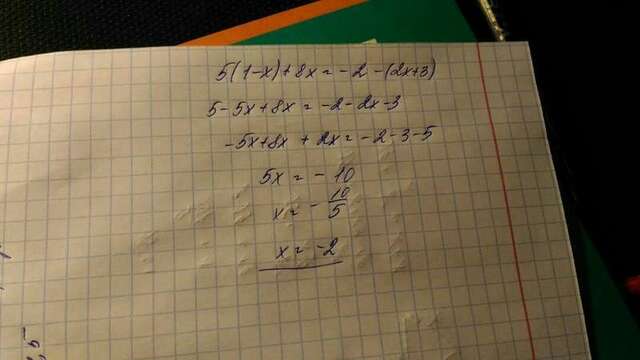 5(1-x)+8x=-2-(2x+3)
5-5x+8x=-2-2x-3
-5x+8x+2x=-2-3-5
5x=-10
x=-10/5
x=-2